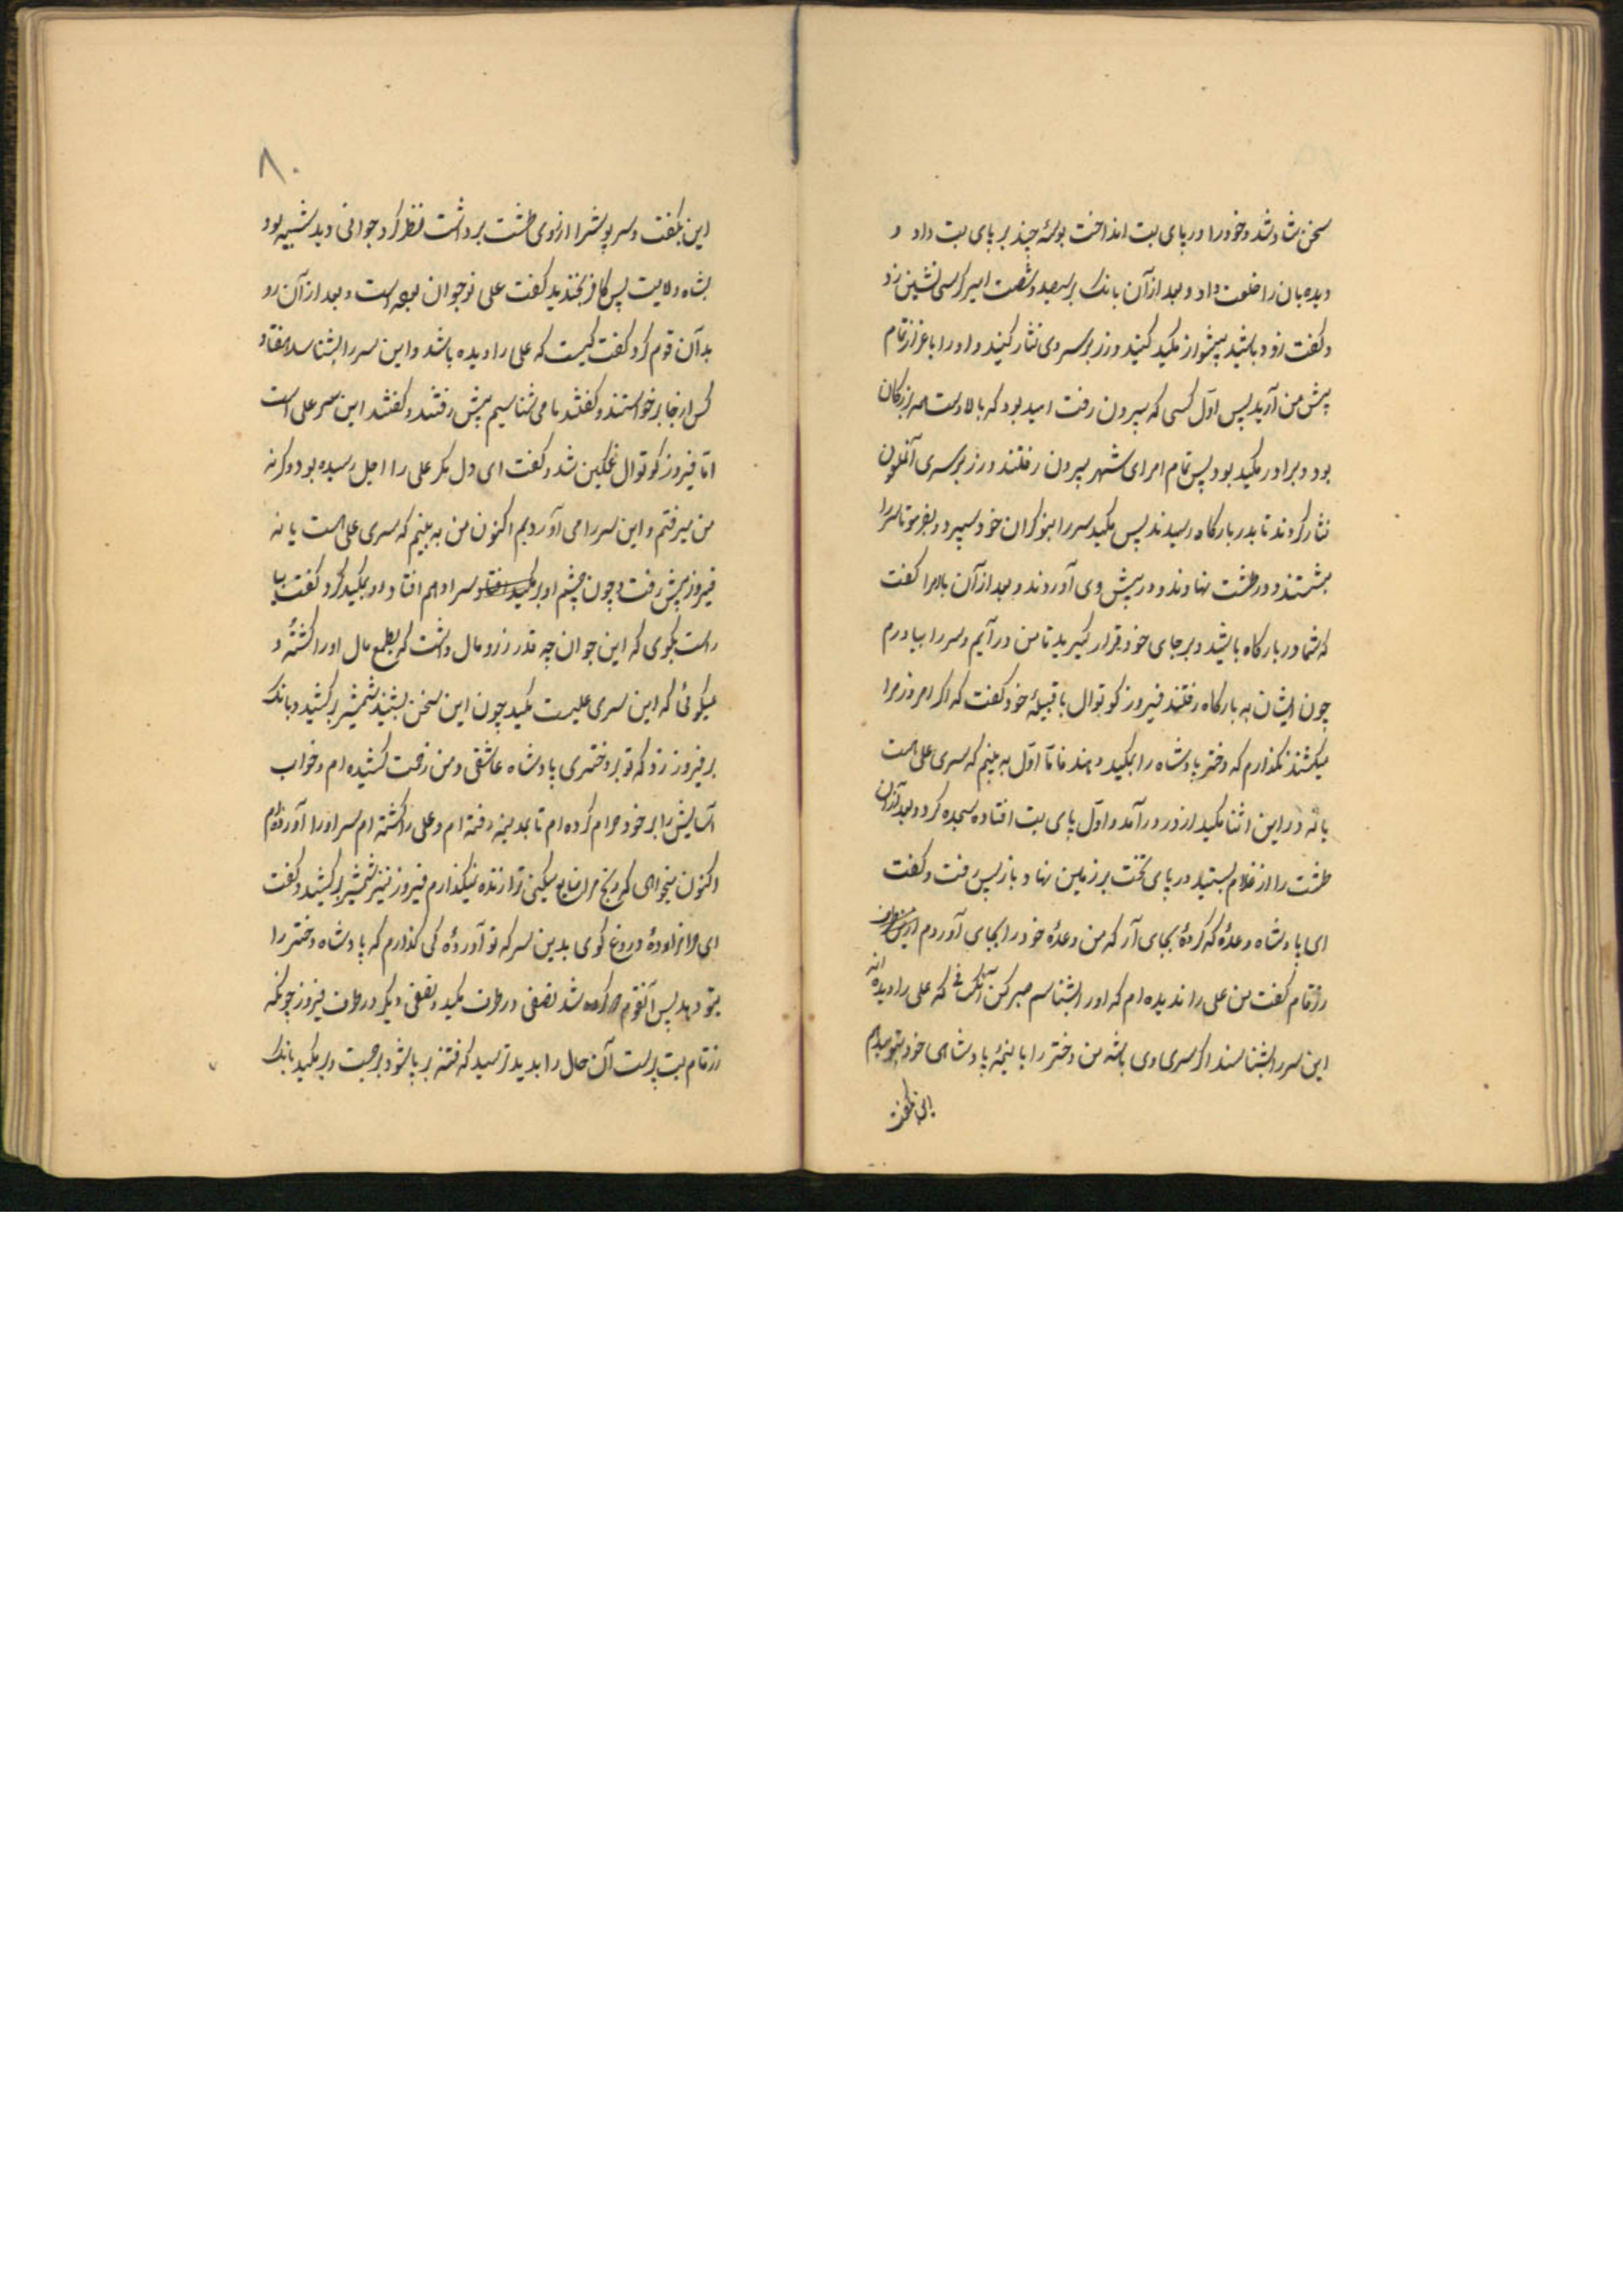 سخن شاد شد و خود را در پای بت انداخت بوسهٔ چند بر پای بت داد و
دیده‌بان را خلعت داد و بعد از آن بانک بر سیصد و شصت امیر کرسی نشین زد
و کفت زود باشید پیشواز مکید کنید و زر بر سر وی نثار کنید و او را با عزاز تمام
پیش من آرید پس اوّل کسی که بیرون رفت امید بود که بالادست بزرکان
بود و برادر مکید بود پس تمام امرای شهر بیرون رفتند و زر بر سری آنملعون
نثار کردند تا بدر بارکاه رسیدند پس مکید سر را بنوکران خود سپرد و بفرمود تا سر را
بشستند و در طشت نهادند و در پیش وی آوردند و بعد از آن بامرا کفت
که شما در بارکاه باشید و بر جای خود قرار کیرید تا من در آیم و سر را بیاورم
چون ایشان به بارکاه رفتند فیروز کوتوال با قبیلهٔ خود کفت که اکر امروز مرا
میکشند نکذارم که دختر پادشاه را بمکید دهند فامّا اوّل به بینم که سری علی است
یا نه در این اثنا مکید از در در آمد و اوّل پای بت افتاده سجده کرد و بعد از آن
طشت را از غلام بستید در پای تخت بر زمین نهاد و باز پس رفت و کفت
ای پادشاه وعدهٔ که کردهٔ بجای آر که من وعدهٔ خود را بجای آوردم
رزقام کفت من علی را ندیده ام که او را بشناسم صبر کن آنکسانی که علی را دیده اند
این سر را بشناسند اکر سری وی باشد من دختر را با نیمهٔ پادشاهی خود بتو میدهم
این بکفت
۸۰
این بکفت و سرپوش را از روی طشت برداشت نظر کرد جوانی دید شبیه بود
بشاه ولایت پس کافر بخندید کفت علی نوجوان بوده است و بعد از آن رو
بدآن قوم کرد کفت کیست که علی را دیده باشد و این سر را بشناسد هفتاد
کس از جا برخواستند و کفتند ما می شناسیم پیش رفتند و کفتند این سر علی است
امّا فیروز کوتوال غمکین شد و کفت ای دل مکر علی را اجل رسیده بود و کرنه
من میرفتم و این سر را می آوردیم اکنون من به بینم که سری علی است یا نه
فیروز پیش رفت و چون چشم او بر سر او هم افتاد رو بمکید کرد و کفت بیا
راست بکوی که این جوان چه قدر زر و مال داشت که بطمع مال او را کشتهٔ و
میکوئی که این سری علیست مکید چون این سخن بشنید شمشیر بر کشید و بانک
بر فیروز زد که تو بر دختری پادشاه عاشقی و من زحمت کشیده ام و خواب
آسایش را بر خود حرام کرده ام تا بمدینه رفته ام و علی را کشته ام سر او را آورده‌ام
اکنون میخواهی که رنج مرا ضایع میکنی ترا زنده نمیکذارم فیروز نیز شمشیر بر کشید و کفت
ای حرامزادهٔ دروغ کوی بدین سر که تو آوردهٔ کی کذارم که پادشاه دختر را
بتو دهد پس آنقوم دو کروه شد نصفی در طرف مکید و نصفی دیکر در طرف فیروز چونکه
رزقام بت پرست آن حال را بدید ترسید که فتنه بر پا شود برجست و بر مکید بانک